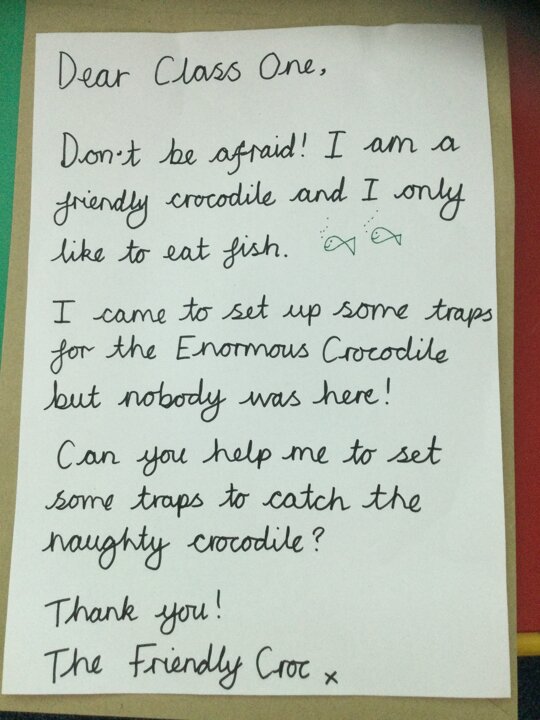 Dear Class One,
Don't be afraid! I am a
friendly crocodile and I only
like to eat fish.
I came to set up some traps
for the Enormous Crocodile
but nobody was here!
Can you help me to set
some traps to catch the
naughty crocodile?
Thank you!
The Friendly Croc x